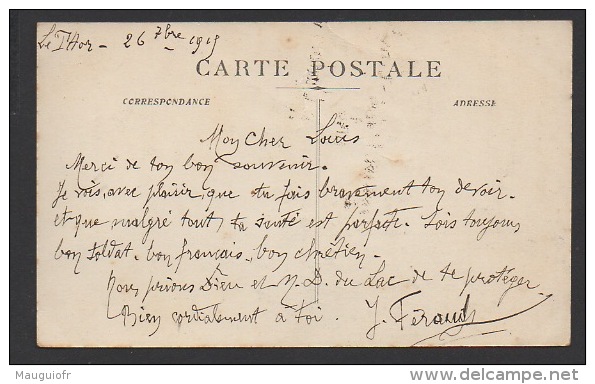 Le Thor - 26 7bre 1915
CARTE POSTALE
CORRESPONDANCE
ADRESSE
Mon Cher Louis
Merci de ton bon souvenir.
Je vois, avec plaisir, que tu fais bravement ton devoir.
et que malgré tout, ta santé est parfaite. Sois toujours
bon soldat. bon français, bon chrétien.
Nous prions Dieu et N. D. du Lac de te protéger.
Bien cordialement à toi. J. Féraud
Mauguiofr
www.delcampe.net